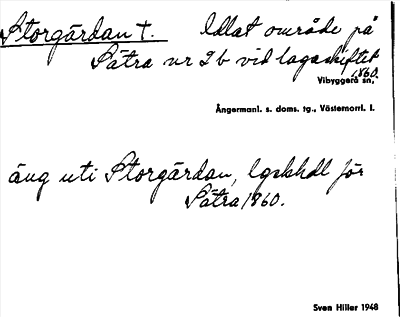 Storgärdan t. Odlat område på
Sätra nr 2 b vid lagaskiftet
1860.
Vibyggerå sn,
Ångermanl. s. doms. tg., Västernorrl. l.
äng uti Storgärdan, lgskhdl för
Sätra 1860.
Sven Hiller 1948